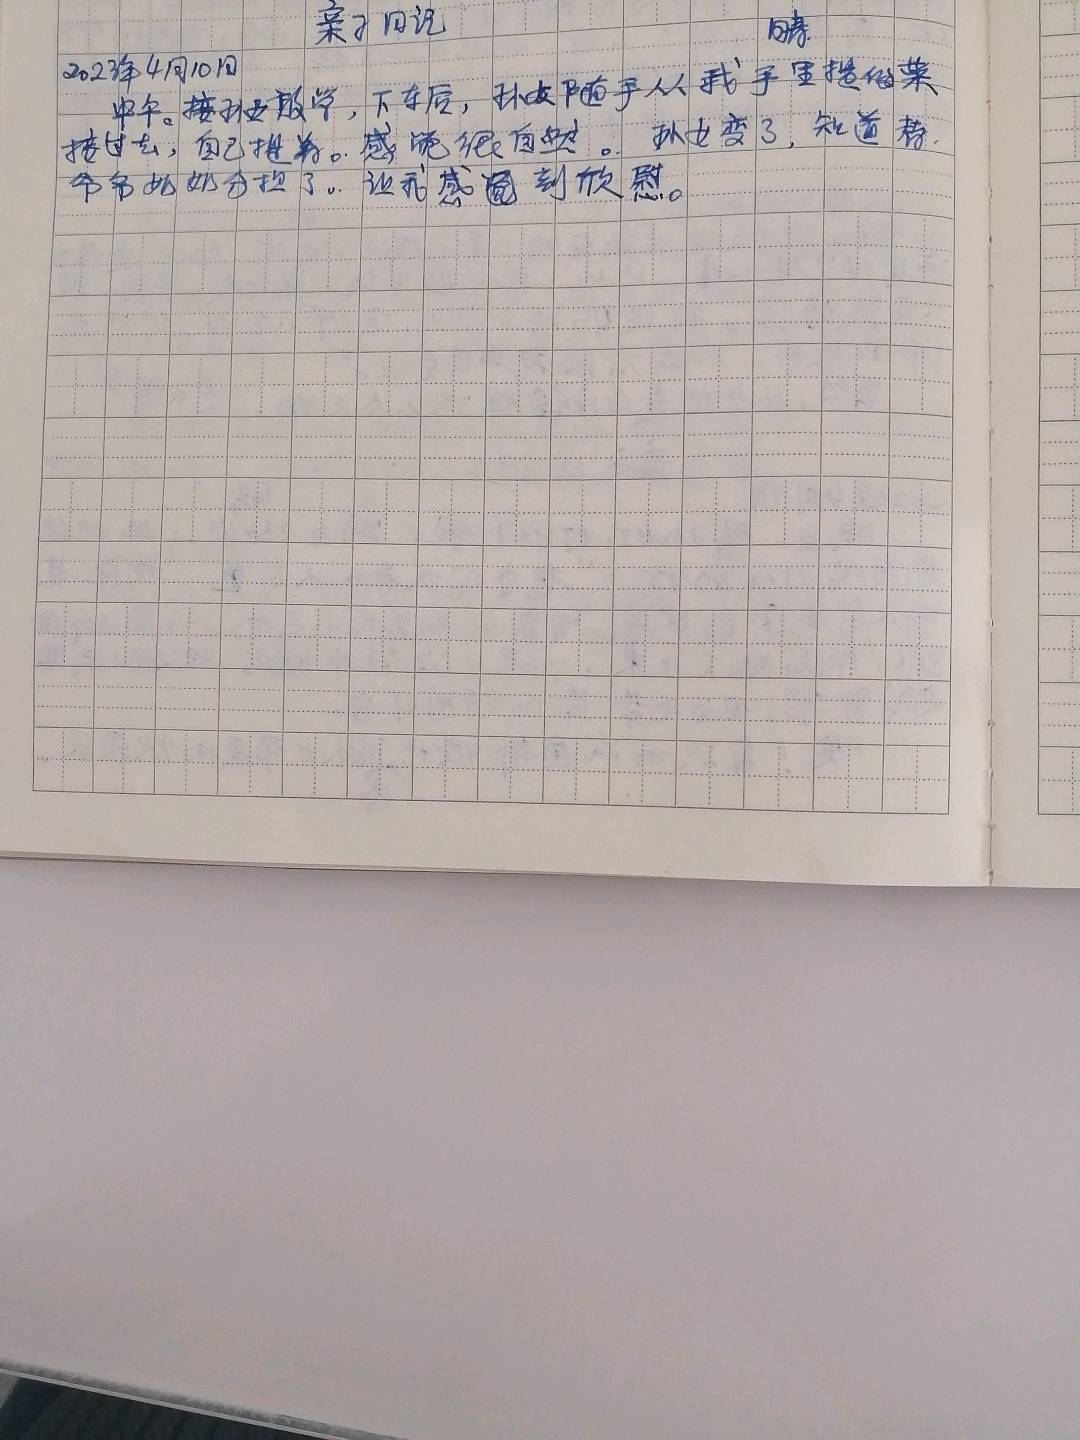 亲子日记
晴
2023年4月10日
中午。接孙女放学，下车后，孙女随手从我手里提的菜
接过去，自己提着。感觉很自然。孙女变了，知道替
爷爷奶奶分担了。让我感到欣慰。